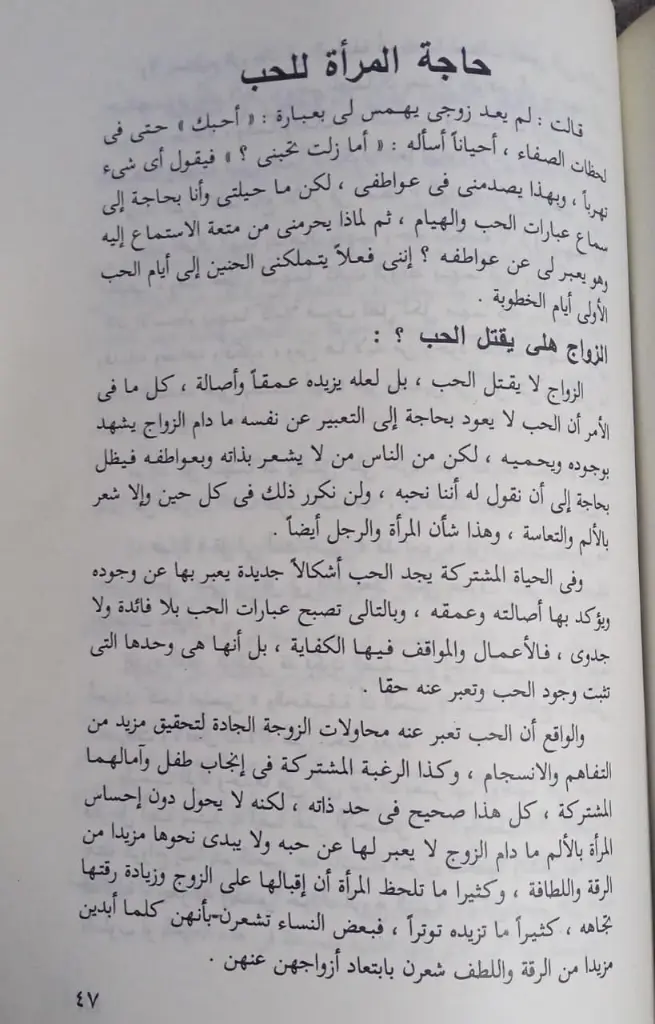 حاجة المرأة للحب
قالت : لم يعد زوجى يهمس لى بعبارة : « أحبك » حتى فى
لحظات الصفاء ، أحياناً أسأله : « أما زلت تحبنى ؟ » فيقول أى شىء
تهرباً ، وبهذا يصدمنى فى عواطفى ، لكن ما حيلتى وأنا بحاجة إلى
سماع عبارات الحب والهيام ، ثم لماذا يحرمنى من متعة الاستماع إليه
وهو يعبر لى عن عواطفه ؟ إننى فعلاً يتملكنى الحنين إلى أيام الحب
الأولى أيام الخطوبة .
الزواج هلى يقتل الحب ؟ :
الزواج لا يقتل الحب ، بل لعله يزيده عمقاً وأصالة ، كل ما فى
الأمر أن الحب لا يعود بحاجة إلى التعبير عن نفسه ما دام الزواج يشهد
بوجوده ويحميه ، لكن من الناس من لا يشعر بذاته وبعواطفه فيظل
بحاجة إلى أن نقول له أننا نحبه ، ولن نكرر ذلك فى كل حين وإلا شعر
بالألم والتعاسة ، وهذا شأن المرأة والرجل أيضاً .
وفى الحياة المشتركة يجد الحب أشكالاً جديدة يعبر بها عن وجوده
ويؤكد بها أصالته وعمقه ، وبالتالى تصبح عبارات الحب بلا فائدة ولا
جدوى ، فالأعمال والمواقف فيها الكفاية ، بل أنها هى وحدها التى
تثبت وجود الحب وتعبر عنه حقا .
والواقع أن الحب تعبر عنه محاولات الزوجة الجادة لتحقيق مزيد من
التفاهم والانسجام ، وكذا الرغبة المشتركة فى إنجاب طفل وآمالهما
المشتركة ، كل هذا صحيح فى حد ذاته ، لكنه لا يحول دون إحساس
المرأة بالألم ما دام الزوج لا يعبر لها عن حبه ولا يبدى نحوها مزيدا من
الرقة واللطافة ، وكثيرا ما تلحظ المرأة أن إقبالها على الزوج وزيادة رقتها
تجاهه ، كثيراً ما تزيده توتراً ، فبعض النساء تشعرن بأنهن كلما أبدين
مزيدا من الرقة واللطف شعرن بابتعاد أزواجهن عنهن .
٤٧